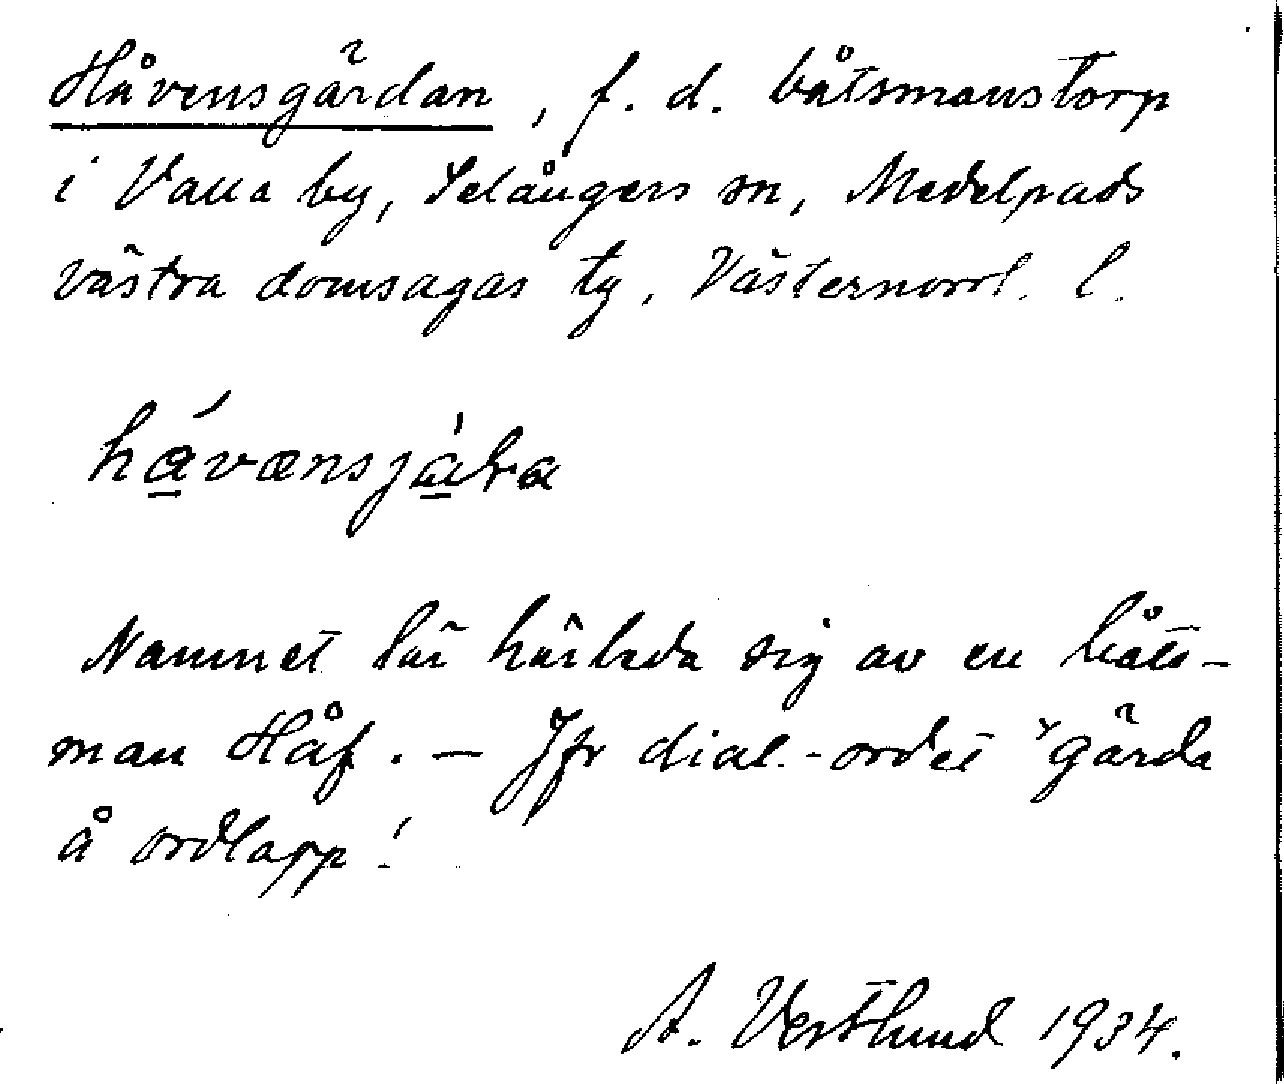 Håvensgärdan, f. d. båtsmanstorp
i Valla by, Selångers sn, Medelpads
västra domsagas tg, Västernorrl. l.
hávænsjára
Namnet lär härleda sig av en båts-
man Håf. – Jfr dial.-ordet ˅gärda
å ordlapp!
A. Vestlund 1934.